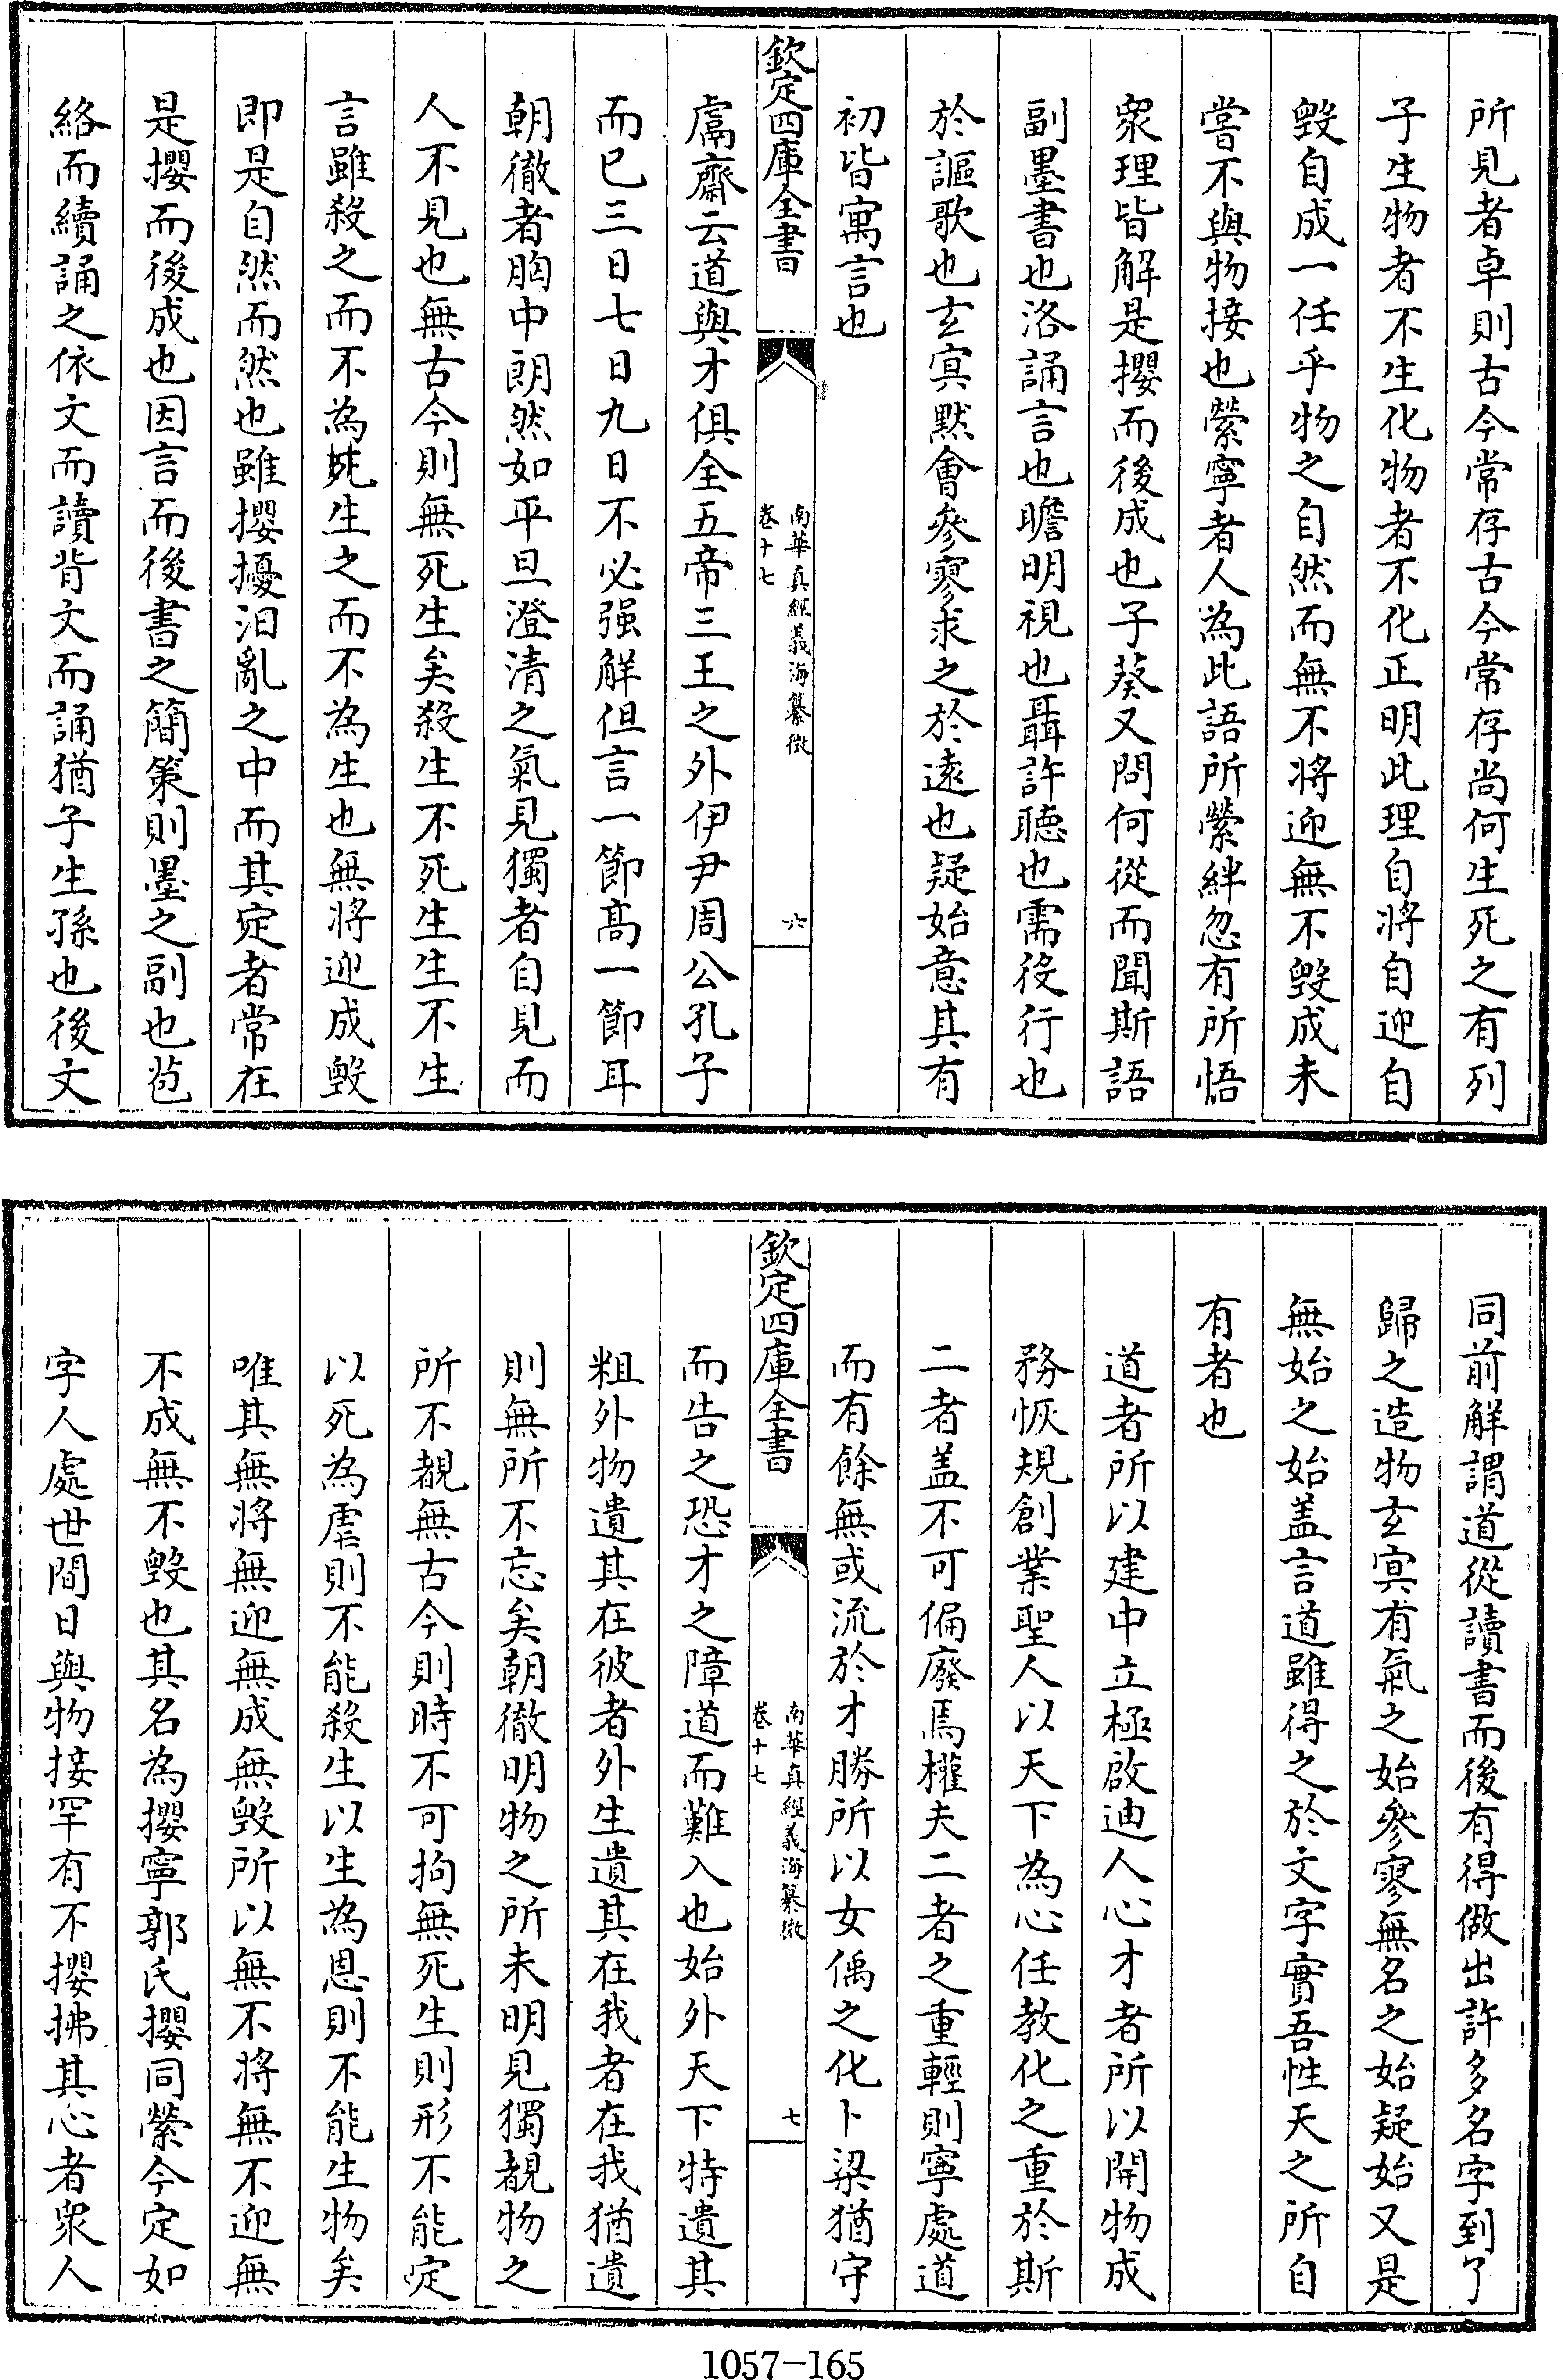 所見者卓則古今常存古今常存尚何生死之有列
子生物者不生化物者不化正明此理自將自迎自
毀自成一任乎物之自然而無不將迎無不毀成未
嘗不與物接也縈寧者人為此語所縈絆忽有所悟
衆理皆解是攖而後成也子葵又問何從而聞斯語
副墨書也洛誦言也瞻明視也聶許聴也需役行也
於謳歌也玄冥默會參寥求之於逺也疑始意其有
初皆寓言也
欽定四庫全書
南華真經義海纂微
卷十七
六
鬳齋云道與才俱全五帝三王之外伊尹周公孔子
而已三日七日九日不必强解但言一節髙一節耳
朝徹者胸中朗然如平旦澄清之氣見獨者自見而
人不見也無古今則無死生矣殺生不死生生不生
言雖殺之而不為死生之而不為生也無將迎成毀
即是自然而然也雖攖擾汨亂之中而其定者常在
是攖而後成也因言而後書之簡策則墨之副也苞
絡而續誦之依文而讀背文而誦猶子生孫也後文
同前解謂道從讀書而後有得做出許多名字到了
歸之造物玄冥有氣之始參寥無名之始疑始又是
無始之始盖言道雖得之於文字實吾性天之所自
有者也
道者所以建中立極啟迪人心才者所以開物成
務恢規創業聖人以天下為心任教化之重於斯
二者盖不可偏廢焉權夫二者之重輕則寧處道
而有餘無或流於才勝所以女偊之化卜梁猶守
欽定四庫全書
南華真經義海纂微
卷十七
七
而告之恐才之障道而難入也始外天下特遺其
粗外物遺其在彼者外生遺其在我者在我猶遺
則無所不忘矣朝徹明物之所未明見獨覩物之
所不覩無古今則時不可拘無死生則形不能定
以死為虐則不能殺生以生為恩則不能生物矣
唯其無將無迎無成無毀所以無不將無不迎無
不成無不毀也其名為攖寧郭氏攖同縈今定如
字人處世間日與物接罕有不攖拂其心者衆人
1057-165